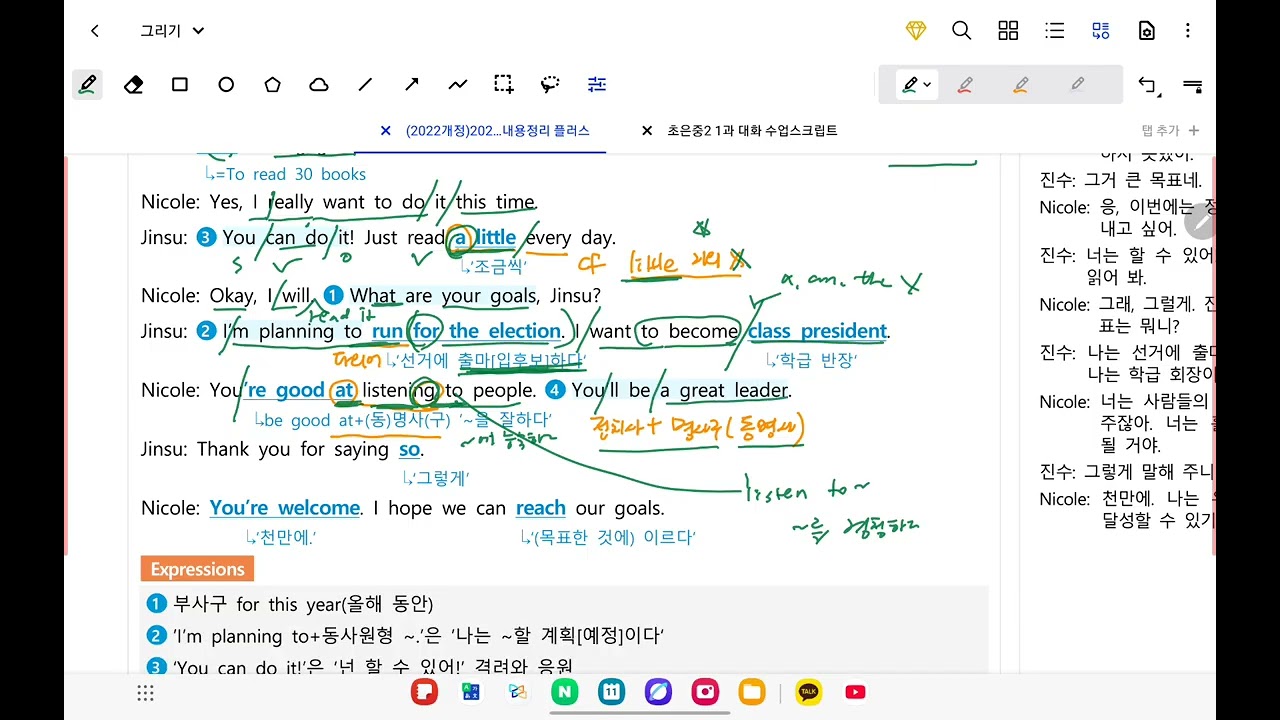 그리기
(2022개정)202...내용정리 플러스
초은중2 1과 대화 수업스크립트
탭 추가 +
↳=To read 30 books
Nicole: Yes, I really want to do it this time.
Jinsu: 3 You can do it! Just read a little every day.
S V O V
↳'조금씩'
cf little 거의 X
Nicole: Okay, I will. 1 What are your goals, Jinsu?
read it
a, an, the X
Jinsu: 2 I'm planning to run for the election. I want to become class president.
↳'선거에 출마[입후보]하다'
↳'학급 반장'
Nicole: You're good at listening to people. 4 You'll be a great leader.
↳be good at+(동)명사(구) '~을 잘하다'
전치사 + 명사구 (동명사)
Jinsu: Thank you for saying so.
↳'그렇게'
listen to ~
Nicole: You're welcome. I hope we can reach our goals.
~를 경청하다
↳'천만에.'
↳'(목표한 것에) 이르다'
Expressions
1 부사구 for this year(올해 동안)
2 'I'm planning to+동사원형 ~.'은 '나는 ~할 계획[예정]이다'
3 'You can do it!'은 '넌 할 수 있어!' 격려와 응원
하지 못했어.
진수: 그거 큰 목표네.
Nicole: 응, 이번에는 정
내고 싶어.
진수: 너는 할 수 있어
읽어 봐.
Nicole: 그래, 그럴게. 진
표는 뭐니?
진수: 나는 선거에 출마
나는 학급 회장이
Nicole: 너는 사람들의
주잖아. 너는 훌
될 거야.
진수: 그렇게 말해 주니
Nicole: 천만에. 나는 우
달성할 수 있기
N
11
TALK